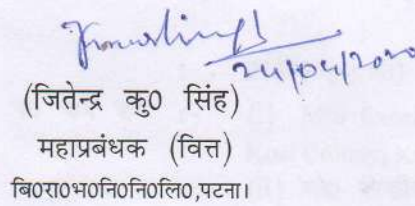 24/04/2020
(जितेन्द्र कु0 सिंह)
महाप्रबंधक (वित्त)
बि0रा0भ0नि0नि0लि0,पटना।